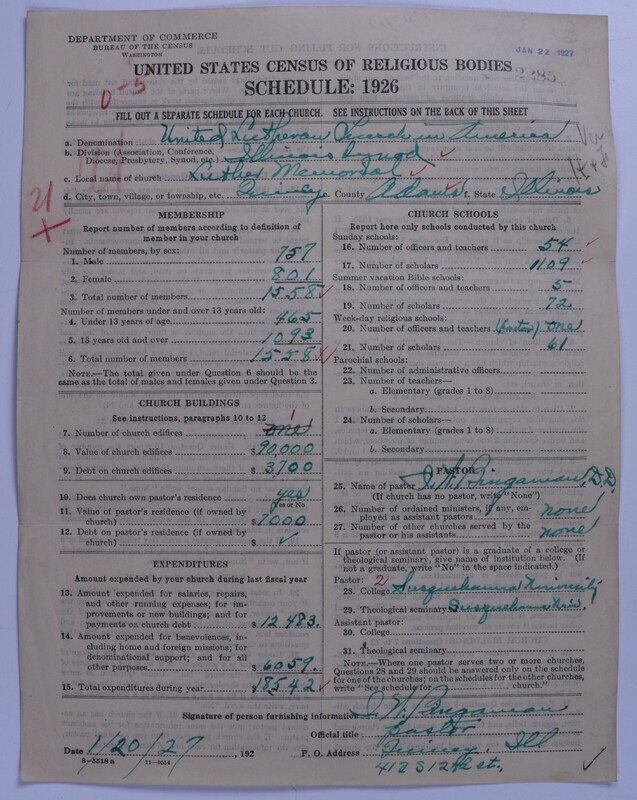 DEPARTMENT OF COMMERCE
BUREAU OF THE CENSUS
WASHINGTON
JAN 22 1927
UNITED STATES CENSUS OF RELIGIOUS BODIES
SCHEDULE: 1926
0-5
FILL OUT A SEPARATE SCHEDULE FOR EACH CHURCH. SEE INSTRUCTIONS ON THE BACK OF THIS SHEET
a. Denomination United Lutheran Church in America
b. Division (Association, Conference, Diocese, Presbytery, Synod, etc.) Illinois Synod
c. Local name of church Luther Memorial
d. City, town, village, or township, etc. Quincy e. County Adams f. State Illinois
21
MEMBERSHIP
Report number of members according to definition of member in your church
Number of members, by sex:
1. Male 757
2. Female 801
3. Total number of members 1558
Number of members under and over 13 years old:
4. Under 13 years of age 465
5. 13 years old and over 1093
6. Total number of members 1558
NOTE.—The total given under Question 6 should be the same as the total of males and females given under Question 3.
CHURCH BUILDINGS
See instructions, paragraphs 10 to 12
7. Number of church edifices one 1
8. Value of church edifices $90,000
9. Debt on church edifices $3700
10. Does church own pastor's residence yes
(Yes or No)
11. Value of pastor's residence (if owned by church) $7000
12. Debt on pastor's residence (if owned by church) $
EXPENDITURES
Amount expended by your church during last fiscal year
13. Amount expended for salaries, repairs, and other running expenses; for improvements or new buildings; and for payments on church debt $12483.
14. Amount expended for benevolences, including home and foreign missions; for denominational support; and for all other purposes $6059.
15. Total expenditures during year $18542
CHURCH SCHOOLS
Report here only schools conducted by this church
Sunday schools:
16. Number of officers and teachers 54
17. Number of scholars 1109
Summer vacation Bible schools:
18. Number of officers and teachers 5
19. Number of scholars 72
Week-day religious schools:
20. Number of officers and teachers (pastor) one
21. Number of scholars 61
Parochial schools:
22. Number of administrative officers
23. Number of teachers—
a. Elementary (grades 1 to 8)
b. Secondary
24. Number of scholars—
a. Elementary (grades 1 to 8)
b. Secondary
PASTOR
25. Name of pastor Bingaman, D.D.
(If church has no pastor, write "None")
26. Number of ordained ministers, if any, employed as assistant pastors none
27. Number of other churches served by the pastor or his assistants none
If pastor (or assistant pastor) is a graduate of a college or theological seminary, give name of institution below. (If not a graduate, write "No" in the space indicated.)
Pastor: 2
28. College Susquehanna University
29. Theological seminary Susquehanna Univ.
Assistant pastor:
30. College
31. Theological seminary
NOTE.—Where one pastor serves two or more churches, Questions 28 and 29 should be answered only on the schedule for one of the churches; on the schedules for the other churches, write "See schedule for church."
Signature of person furnishing information Bingaman
Official title pastor
Date 1/20/27, 192
P. O. Address Quincy, Ill
412 S 12th St.
8-5518 a 11-9264